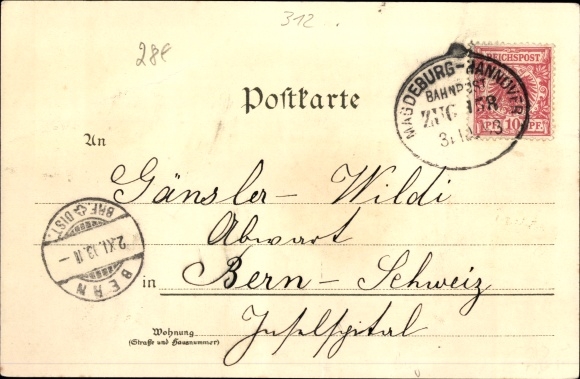 312
28€
REICHSPOST
MAGDEBURG-HANNOVER
BAHNPOST
ZUG 158
10 PF
Postkarte
An
Gänsler- Wildi
Abwart
BRF. DIST.
2.XI.
BERN
in Bern- Schweiz
Wohnung
(Straße und Hausnummer)
Inselspital